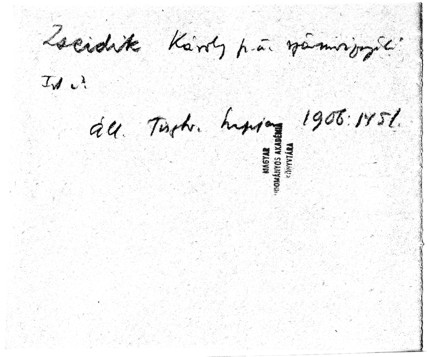 Zseidik Károly p. ü. számvizsgáló
Áll. Tisztv. Lapja 1906: 1451.
MAGYAR
TUDOMÁNYOS AKADÉMIA
KÖNYVTÁRA